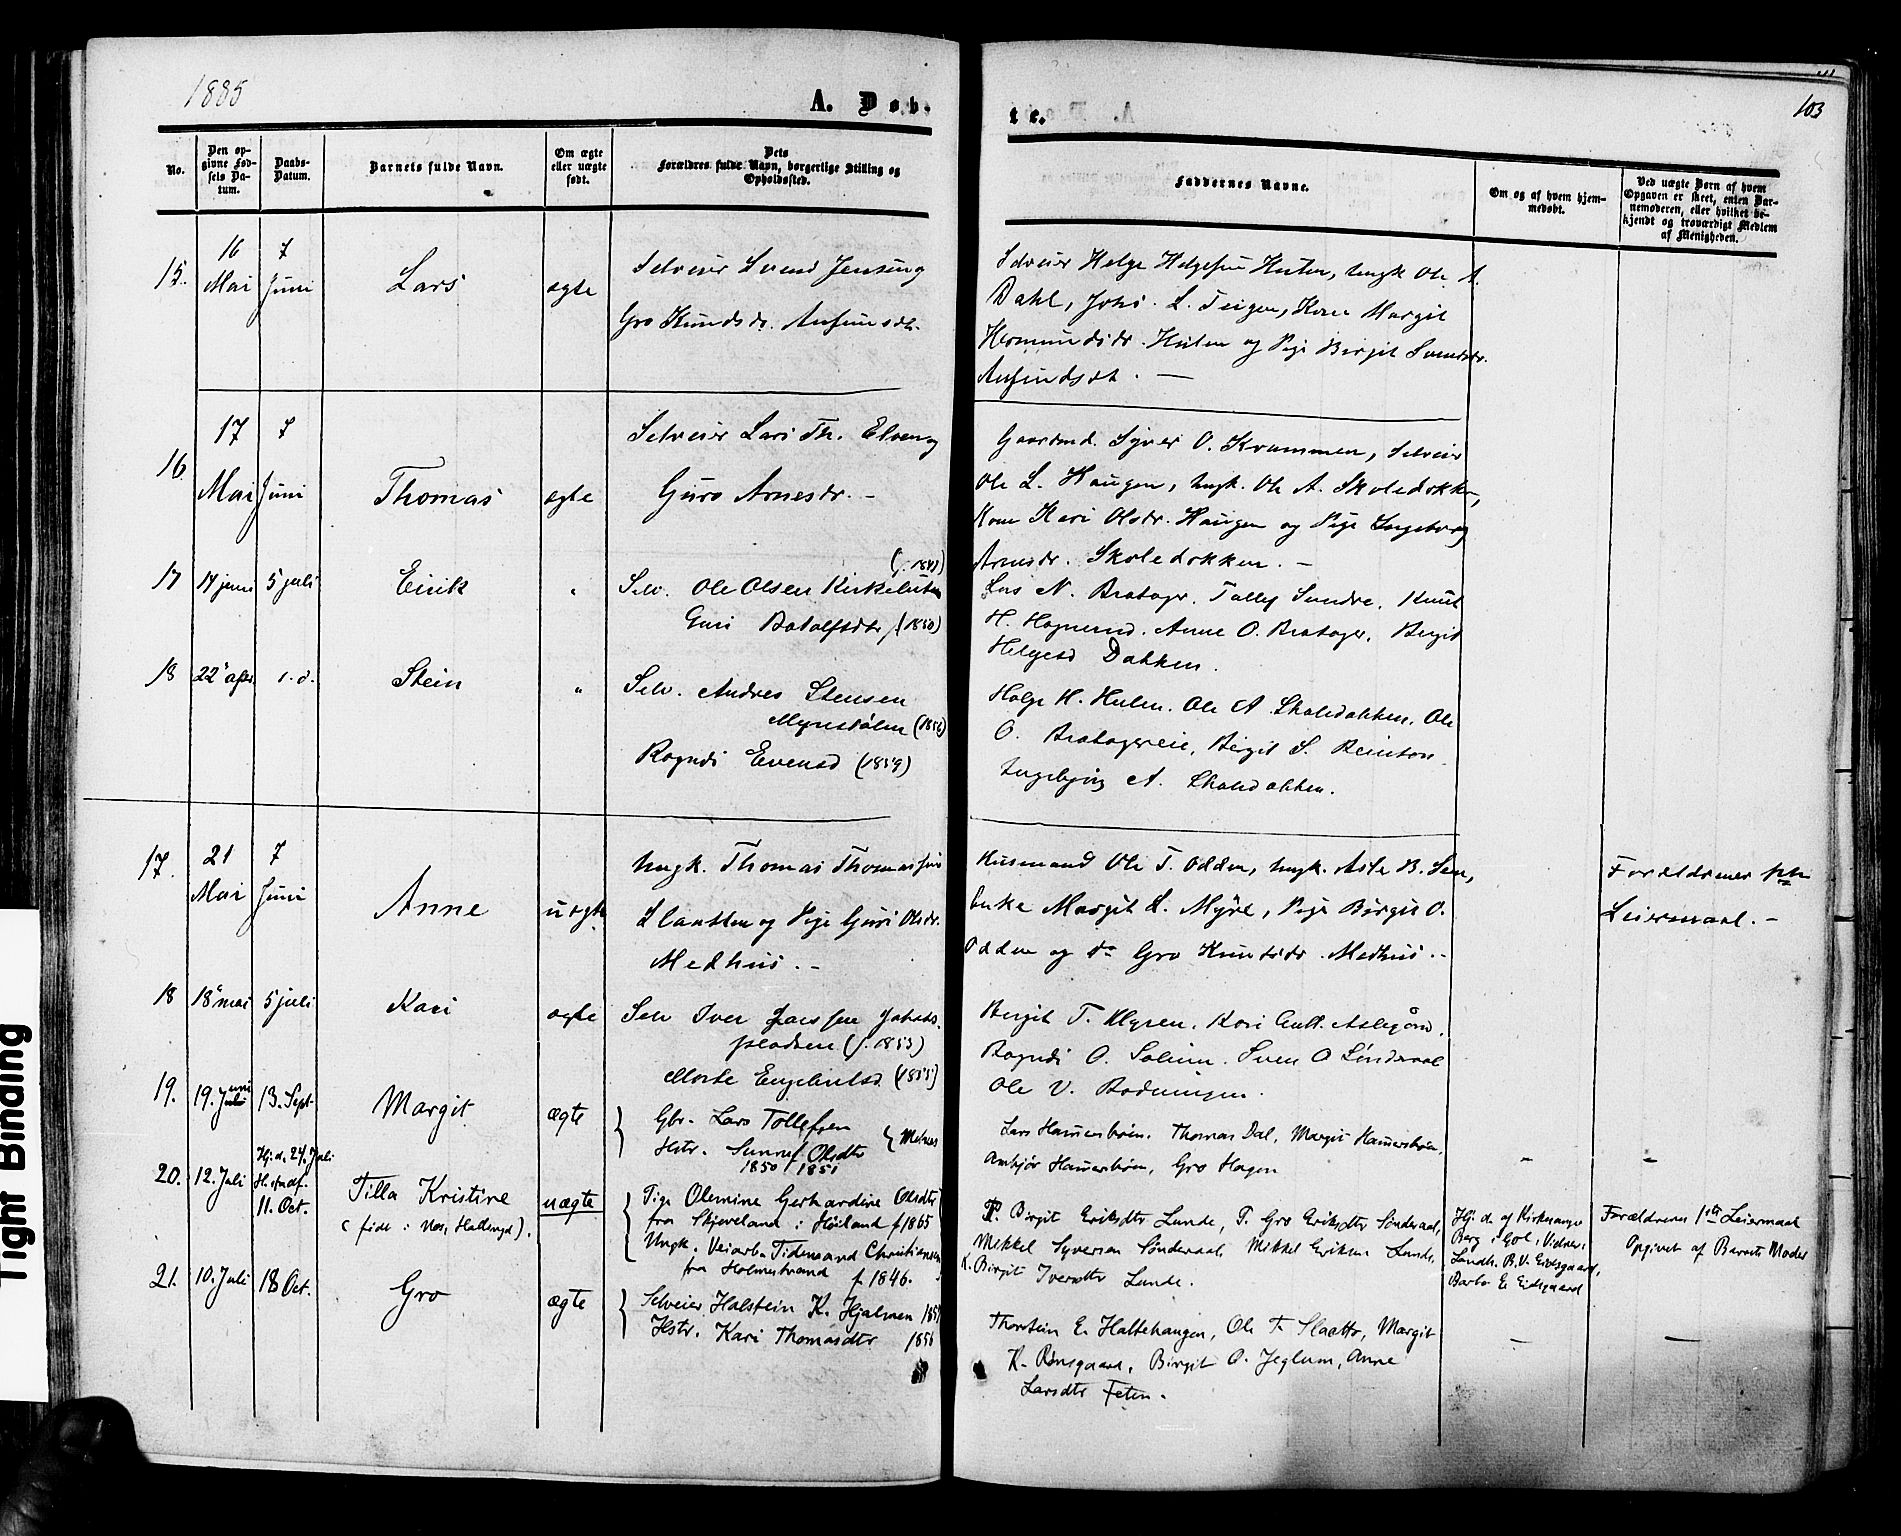 1885
A. Døb-
te.
103
No.
Den op-
givne Fød-
sels Da-
tum.
Daabs-
Datum.
Barnets fulde Navn.
Om ægte
eller uægte
født.
Dets
Forældres fulde Navn, borgerlige Stilling og
Opholdssted.
Faddernes Navne.
Om og af hvem hjem-
medøbt.
Ved uægte Børn af hvem
Opgaven er skeet, enten Bar-
nemoderen, eller hvilket be-
kjendt og troværdigt Medlem
af Menigheden.
15.
16
Mai
7
Juni
Lars
ægte
Selveier Svend Jensen og
Gro Knudsdr.
Selveier Helge Helgesen Hulen, Ungk Ole A.
Dahl, Johs. L. Teigen, Kone Margit
Hermundsdr. Hulen og Pige Birgit Svendsdr.
16
17
Mai
7
Juni
Thomas
ægte
Selveier Lars Th. Elven og
Guro Arnesdr. -
Gaardmd. Syver O. Kvammen, Selveier
Ole L. Haugen, Ungk. Ole A. Skoledokken,
Kone Kari Olsdr. Haugen og Pige Ingeborg
Arnesdr. Skoledokken. -
17
14 juni
5 juli
Eirik
"
Selv. Ole Olsen
Guri Botolfsdtr (1850)
Lars N. Brotager. Tollef Sundre. Knut
H. Anne O. Brotager. Birgit
Helgesd Dokken.
18
22
Stein
"
Selv. Andres Stensen
Myrestølen (1856)
Rogndi Evensd (1859)
Helge H. Hulen. Ole A. Skoledokken. Ole
O. Birgit S. Reinton.
Ingebjørg A. Skoledokken.
17.
21
Mai
7
Juni
Anne
uægte
Ungk. Thomas Thomassen
Slaatten og Pige Guri Olsdr.
Medhus. -
Husmand Ole T. Odden, Ungk. Asle B.
Margit L. Myre, Pige Birgit O.
Odden og do Gro Knutsdr. Medhus. -
Forældrenes
Leiermaal. -
18
18 mai
5 juli
Kari
ægte
Selv Iver Larssen
pladsen (f. 1853)
(1855)
Birgit T. Myren. Kari Gutt. Aslegård.
Rogndi O. Solum. Sven O Sønderaal
Ole V.
19.
19. Juni
13. Sept.
Margit
ægte
Gbr. Lars Tollefsen
Hstr. Olsdtr
1850 / 1851
Lars Hammersbøen. Thomas Dal, Margit Hammersbøen,
Ambjør Hammersbøen, Gro Hagen
-
-
20.
12. Juli
Hj.d. 24. Juli
11. Oct.
Tilla Kristine
(føde: Nes, Hallingd).
uægte
Pige Olemine Gerhardine Olsdtr
fra Skjeveland i Høiland f. 1865
Ungk. Veiarb. Tidemand Christiansen
fra Holmestrand f. 1846.
P. Birgit Eriksdtr Lunde, P. Gro Eriksdtr Sønderaal,
Mikkel Syversen Sønderaal, Mikkel Eriksen Lunde,
K. Birgit Iversdtr Lunde.
Hj. d. af Kirkesanger
Berg i Gol, Vidner:
Landh. B. V. Eidsgaard,
Barbo E. Eidsgaard
Forældrenes 1ste Leiermaal
Opgivet af Barnets Moder
21.
10. Juli
18 Oct.
Gro
ægte
Selveier Halstein K. Hjalmen
Hstr. Kari Thomasdtr 1856
Thorstein E. Haltehaugen, Ole T. Slaatto, Margit
K. Rønsgaard, Birgit O. Jeglum, Anne
Larsdtr Feten.
-
-
Tight Binding